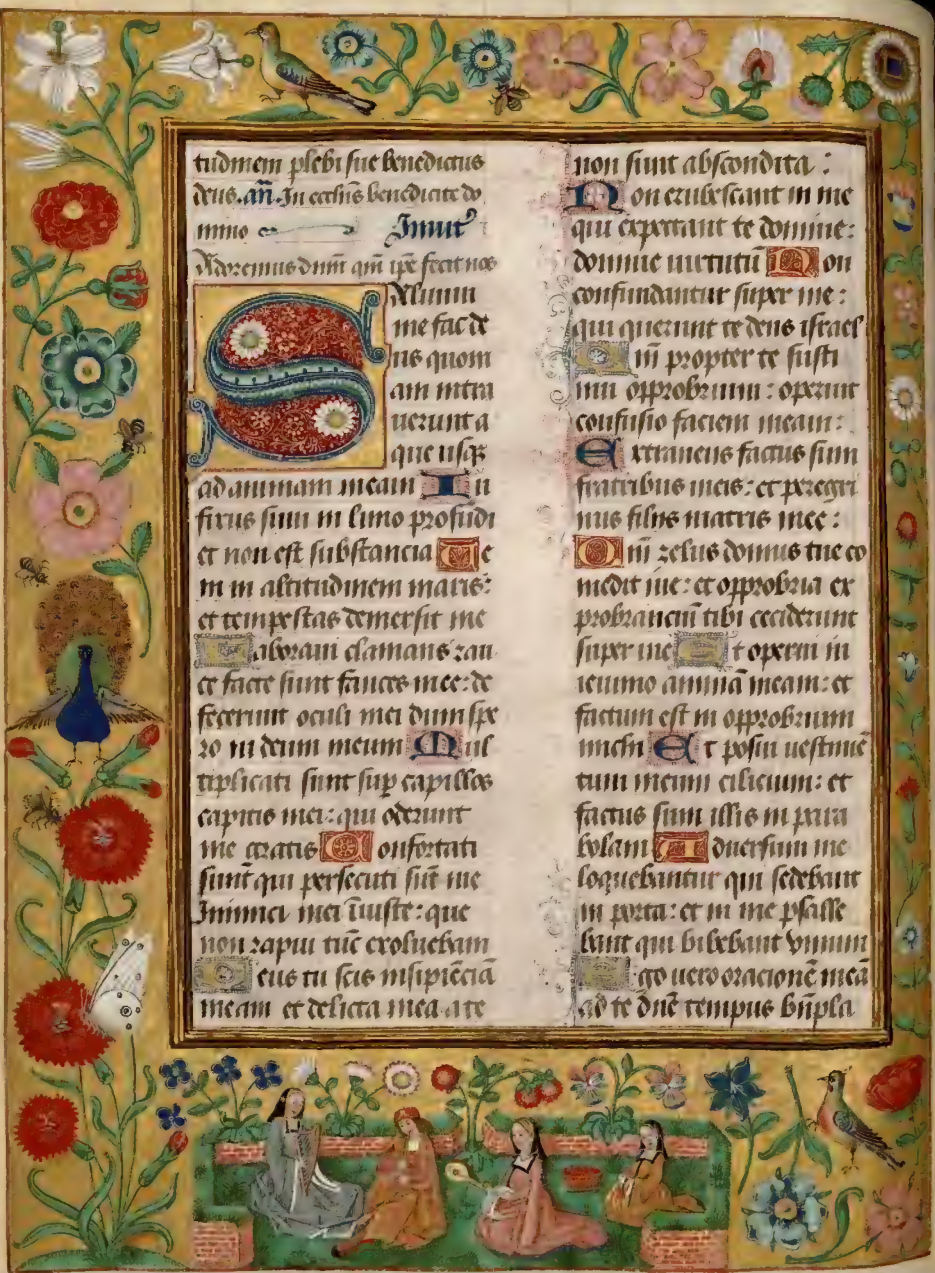 tudinem plebi sue benedictus
deus. an̄. In ecclīis benedicite do
mino Inuit
Adoremus dūm qm̄ ipe fecit nos
Saluum
me fac de
us quom
am intra
uerunt a
que usq
ad animam meam In
fixus sum in limo profūdi
et non est substancia Ve
ni in altitudinem maris:
et tempestas demersit me
Laboraui clamans rau
ce facte sunt fauces mee: de
fecerunt oculi mei dum spe
ro in deum meum Mul
tiplicati sunt sup capillos
capitis mei: qui oderunt
me gratis Confortati
sunt qui persecuti sūt me
Inimici mei īiuste: que
non rapui tūc exoluebam
Deus tu scis insipiēciā
meam et delicta mea a te
non sunt abscondita:
Non erubescant in me
qui expectant te domine:
domine uirtutū Non
confundantur super me:
qui querunt te deus israel
Qm̄ propter te susti
nui opprobrium: operuit
confusio faciem meam:
Extraneus factus sum
fratribus meis: et peregri
nus filiis matris mee:
Qm̄ zelus domus tue co
medit me: et opprobria ex
probranciū tibi ceciderunt
super me Et operui in
ieiunio animā meam: et
factum est in opprobrium
michi Et posui uestimē
tum meum cilicium: et
factus sum illis in para
bolam Aduersum me
loquebantur qui sedebant
in porta: et in me psalle
bant qui bibebant vinum
Ego uero oracionē meā
ad te dn̄e tempus bn̄pla